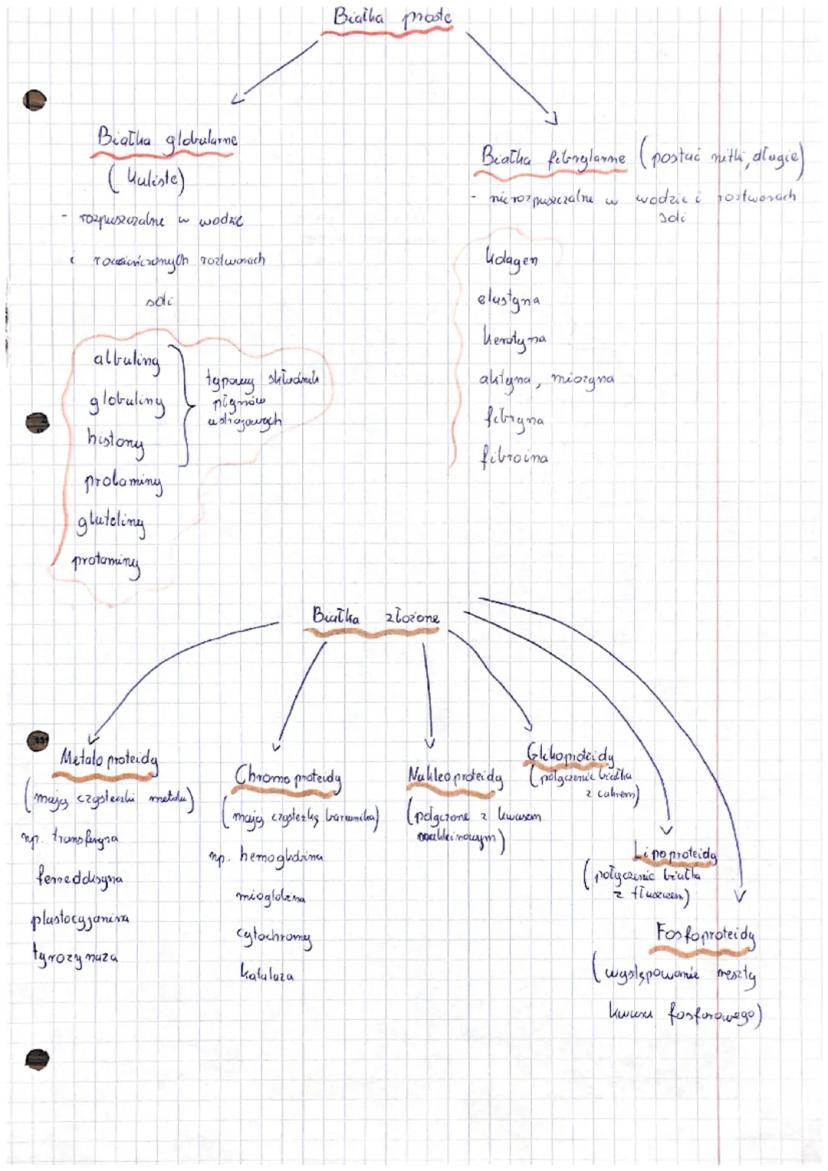 Białka proste
Białka globularne
(kuliste)
- rozpuszczalne w wodzie
i rozcieńczonych roztworach
soli
albuliny
globuliny
histony
prolaminy
gluteliny
protaminy
typowy składnik
płynów
ustrojowych
Białka fibrylarne (postać nitki, długie)
- nierozpuszczalne w wodzie i roztworach
soli
kolagen
elastyna
keratyna
aktyna, miozyna
fibryna
fibroina
Białka złożone
Metaloproteidy
(mają cząsteczki metalu)
np. transferyna
ferredoksyna
plastocyjanina
tyrozynaza
Chromoproteidy
(mają cząsteczkę barwnika)
np. hemoglobina
mioglobina
cytochromy
katalaza
Nukleoproteidy
(połączone z kwasem
nukleinowym)
Glikoproteidy
(połączenie białka
z cukrem)
Lipoproteidy
(połączenie białka
z tłuszczem)
Fosfoproteidy
(występowanie reszty
kwasu fosforowego)